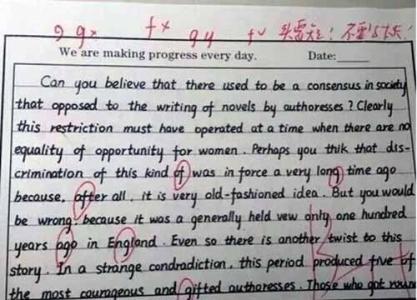 g gx fx gy fv 头留短: 不要写太长
We are making progress every day. Date:
Can you believe that there used to be a consensus in society
that opposed to the writing of novels by authoresses? Clearly
this restriction must have operated at a time when there are no
equality of opportunity for women. Perhaps you thik that dis-
crimination of this kind of was in force a very long time ago
because, after all, it is very old-fashioned idea. But you would
be wrong because it was a generally held vew only one hundred
years ago in England. Even so there is another twist to this
story. In a strange condradiction, this period produced five of
the most courageous and gifted authoresses. Those who got